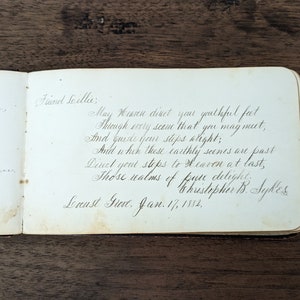 Friend Willie;
May Heaven direct your youthful feet
Through every scene that you may meet,
And guide your steps alight;
And when these earthly scenes are past
Direct your steps to Heaven at last,
Those realms of pure delight.
Christopher B.
Locust Grove. Jan. 17, 1882.